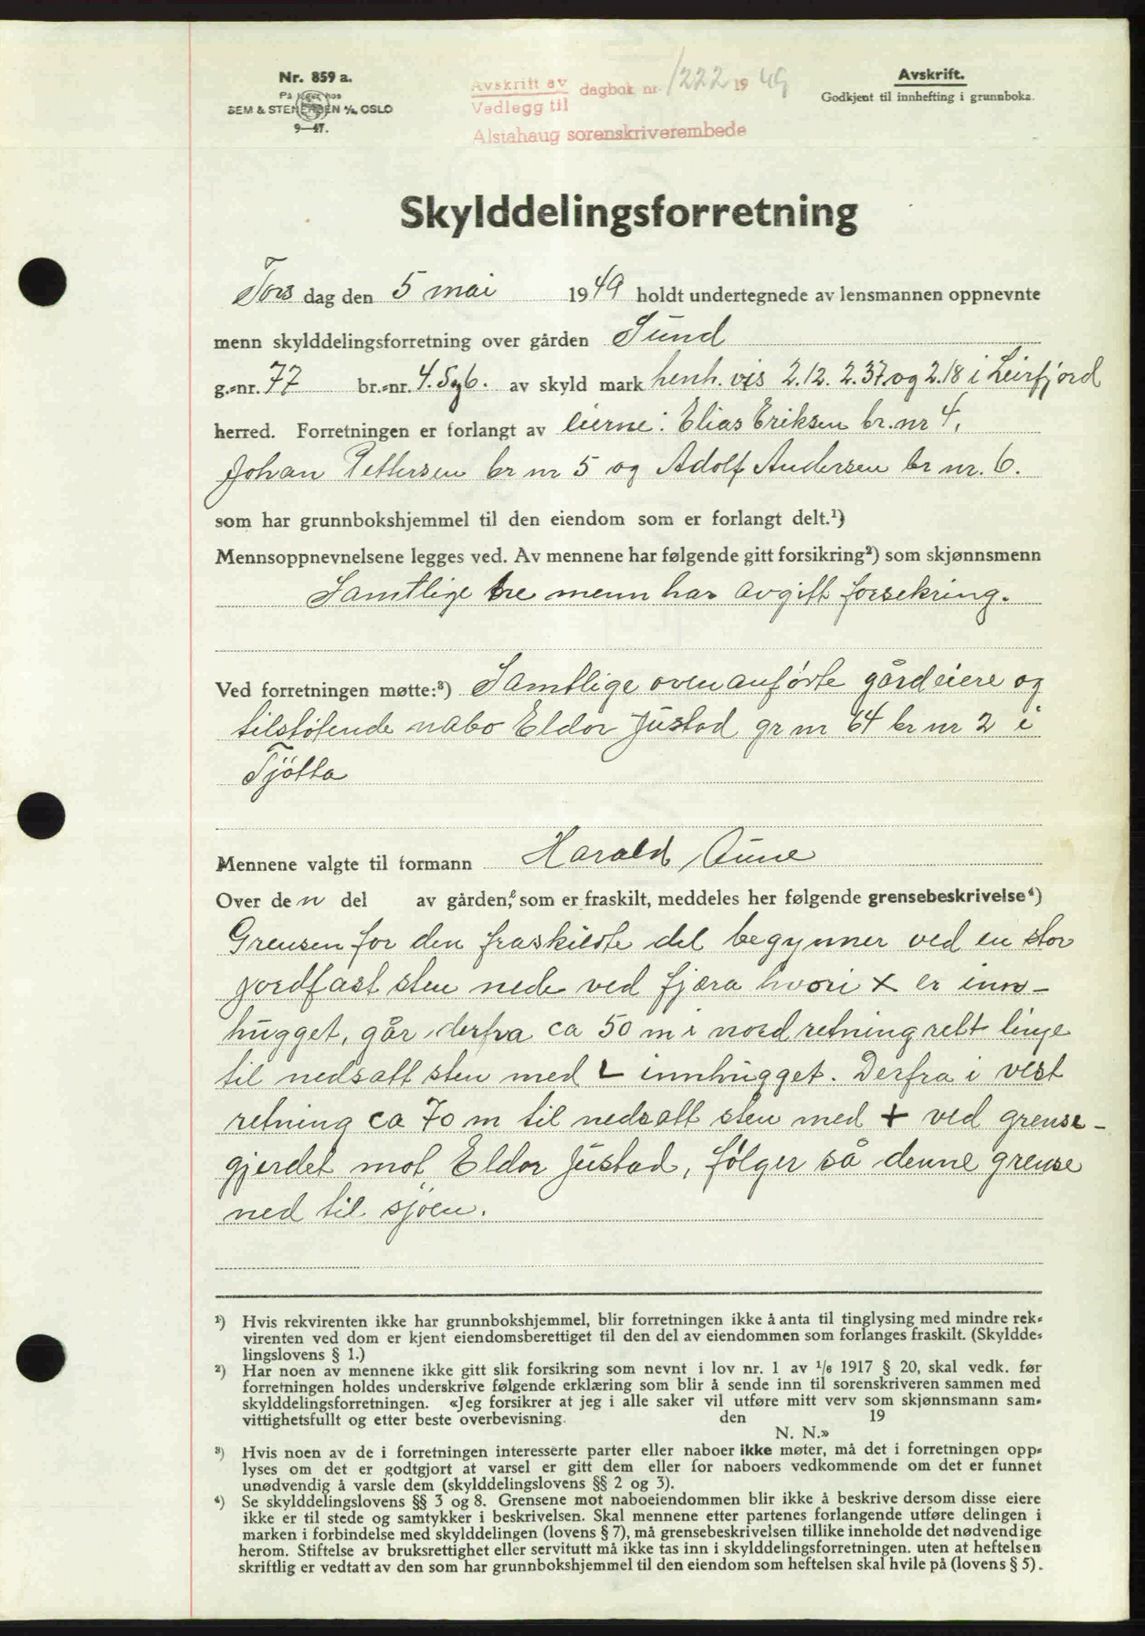 Nr. 859 a.
På lager hos
SEM & STENERSEN A/S, OSLO
9—47.
Avskrift av
Vedlegg til dagbok nr. 1222 19 49
Alstahaug sorenskriverembede
Avskrift.
Godkjent til innhefting i grunnboka.
Skylddelingsforretning
Tors dag den 5 mai 1949 holdt undertegnede av lensmannen oppnevnte
menn skylddelingsforretning over gården Sund
g.-nr. 77 br.-nr. 4. 5 og 6. av skyld mark henh. vis 2.12. 2.37 og 2.18 i Leirfjord
herred. Forretningen er forlangt av eierne: Elias Eriksen br. nr 4,
Johan Pettersen br nr 5 og Adolf Andersen br nr. 6.
som har grunnbokshjemmel til den eiendom som er forlangt delt.¹)
Mennsoppnevnelsene legges ved. Av mennene har følgende gitt forsikring²) som skjønnsmenn
Samtlige tre menn har avgitt forsekring.
Ved forretningen møtte:³) Samtlige ovenanførte gårdeiere og
tilstøtende nabo Eldor Justad gr nr 64 br nr 2 i
Tjøtta
Mennene valgte til formann Harald Aune
Over de n del av gården, som er fraskilt, meddeles her følgende grensebeskrivelse⁴)
Grensen for den fraskildte del begynner ved en stor
jordfast sten nede ved fjæra hvori x er inn-
hugget, går derfra ca 50 m i nordretning rett linje
til nedsatt sten med L innhugget. Derfra i vest
retning ca 70 m til nedsatt sten med + ved grense-
gjerdet mot Eldor Justad, følger så denne grense
ned til sjøen.
¹) Hvis rekvirenten ikke har grunnbokshjemmel, blir forretningen ikke å anta til tinglysing med mindre rek-
virenten ved dom er kjent eiendomsberettiget til den del av eiendommen som forlanges fraskilt. (Skyldde-
lingslovens § 1.)
²) Har noen av mennene ikke gitt slik forsikring som nevnt i lov nr. 1 av 1/6 1917 § 20, skal vedk. før
forretningen holdes underskrive følgende erklæring som blir å sende inn til sorenskriveren sammen med
skylddelingsforretningen. «Jeg forsikrer at jeg i alle saker vil utføre mitt verv som skjønnsmann sam-
vittighetsfullt og etter beste overbevisning. den 19
N. N.»
³) Hvis noen av de i forretningen interesserte parter eller naboer ikke møter, må det i forretningen opp-
lyses om det er godtgjort at varsel er gitt dem eller for naboers vedkommende om det er funnet
unødvendig å varsle dem (skylddelingslovens §§ 2 og 3).
⁴) Se skylddelingslovens §§ 3 og 8. Grensene mot naboeiendommen blir ikke å beskrive dersom disse eiere
ikke er til stede og samtykker i beskrivelsen. Skal mennene etter partenes forlangende utføre delingen i
marken i forbindelse med skylddelingen (lovens § 7), må grensebeskrivelsen tillike inneholde det nødvendige
herom. Stiftelse av bruksrettighet eller servitutt må ikke tas inn i skylddelingsforretningen. uten at heftelsen
skriftlig er vedtatt av den som har grunnbokshjemmel til den eiendom som heftelsen skal hvile på (lovens § 5).